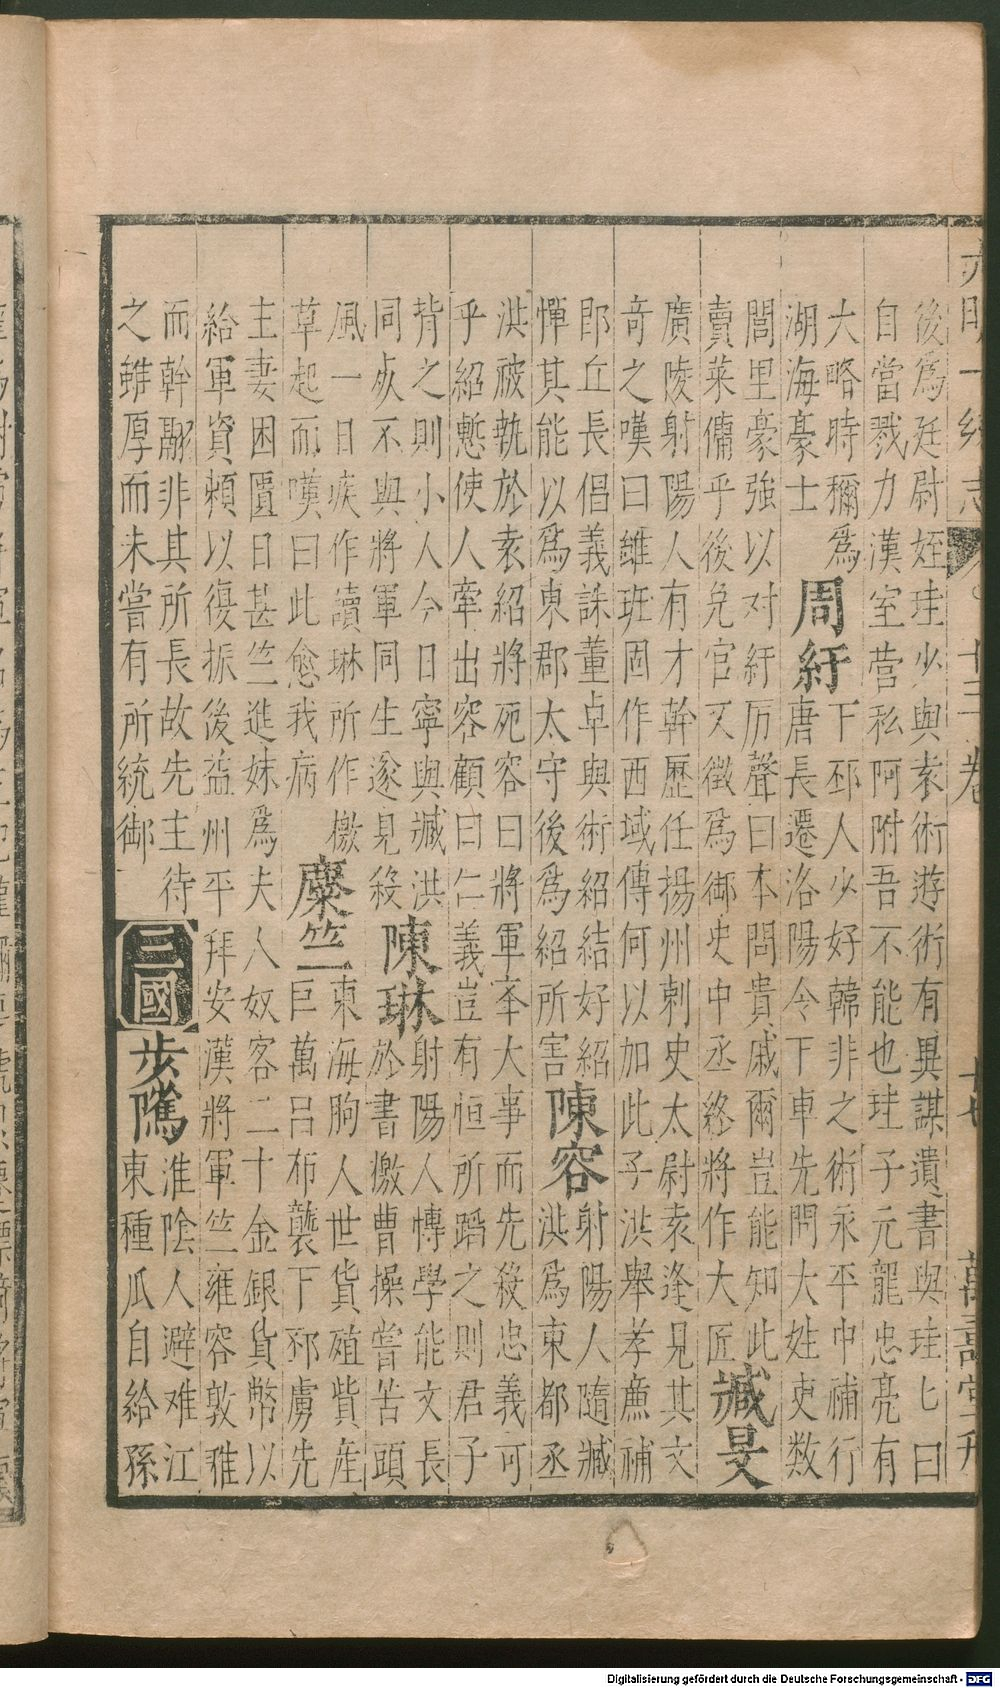 大明一統志　十三卷　十七　萬壽堂刊
後爲廷尉姪珪少與袁術遊術有異謀遺書與珪匕曰
自當戮力漢室营私阿附吾不能也珪子元龍忠亮有
大略時稱爲
湖海豪士
周紆
下邳人少好韓非之術永平中補行
唐長遷洛陽令下車先問大姓吏数
閭里豪強以对紆厉聲曰本問貴戚爾豈能知此
賣菜傭乎後免官又徵爲御史中丞終將作大匠
臧旻
廣陵射陽人有才幹歷任揚州刺史太尉袁逢見其文
竒之嘆曰雖班固作西域傳何以加此子洪舉孝廉補
郎丘長倡義誅董卓與術紹結好紹
憚其能以爲東郡太守後爲紹所害
陳容
射陽人隨臧
洪爲東都丞
洪被執於袁紹將死容曰將軍夲大事而先殺忠義可
乎紹慙使人牽出容顧曰仁義豈有恒所蹈之則君子
背之則小人今日寧與臧洪
同死不與將軍同生遂見殺
陳琳
射陽人博學能文長
於書檄曹操嘗苦頭
風一日疾作讀琳所作檄
草起而嘆曰此愈我病
糜竺
東海朐人世貨殖貲産
巨萬呂布襲下邳虜先
主妻困匱日甚竺進妹爲夫人奴客二十金銀貨幣以
給軍資賴以復振後益州平拜安漢將軍竺雍容敦雅
而幹翮非其所長故先主待
之雖厚而未嘗有所統御
三國
步隲
淮陰人避难江
東種瓜自給孫